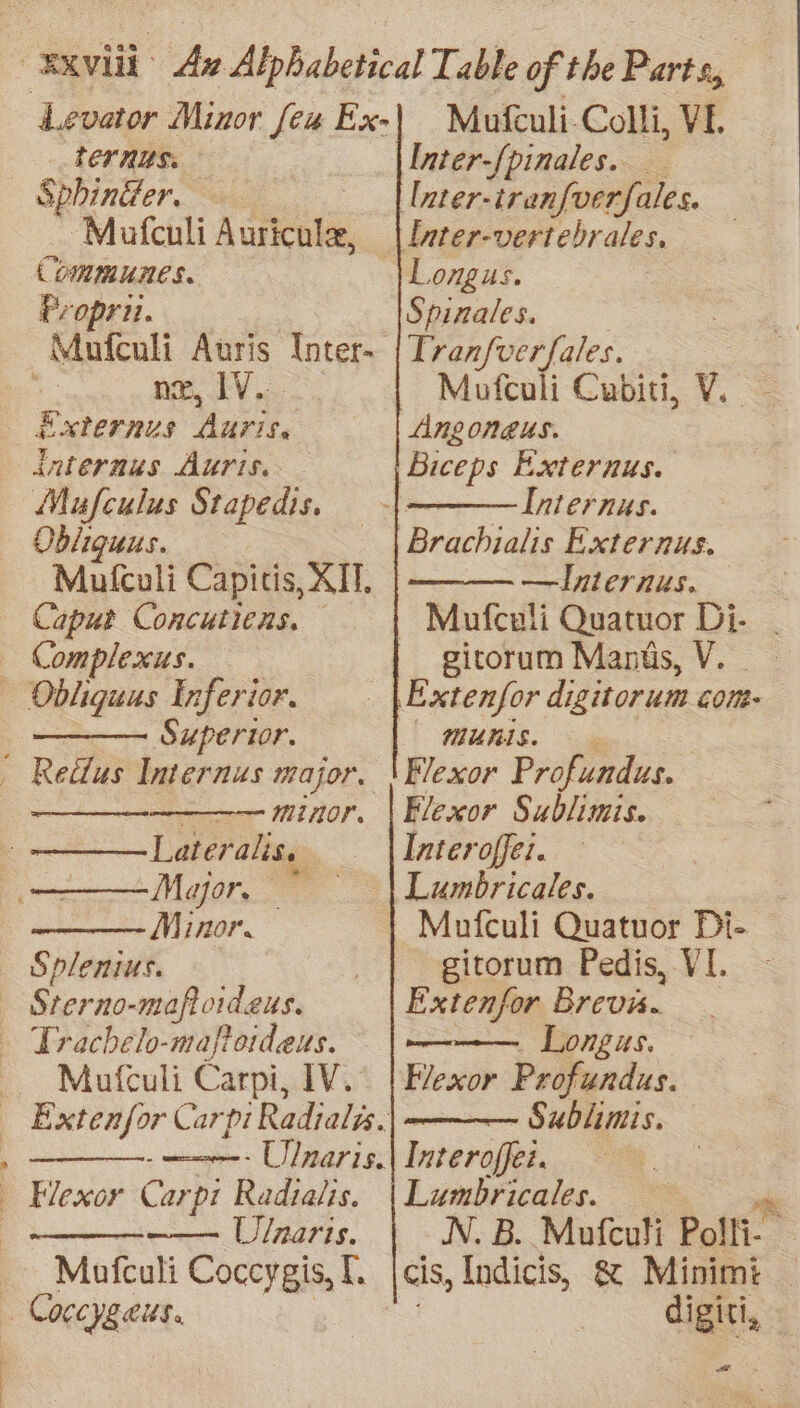 xxviii An Alphabetical Table of the Parts,
Levator Minor ſeu Ex-
ternus.
Sphincter.
Muſculi Auriculæ,
Communes.
Proprii.
Muſculi Auris Inter-
næ, IV.
Externus Auris.
Internus Auris.
Muſculus Stapedis.
Obliquus.
Muſculi Capitis, XII.
Caput Concutiens.
Complexus.
Obliquus Inferior.
——— Superior.
Rectus Internus major.
——— minor.
——— Lateralis.
——— Major.
——— Minor.
Splenius.
Sterno-maſtoidæus.
Trachelo-maſtoidæus.
Muſculi Carpi, IV.
Extenſor Carpi Radialis.
——— - —— - Ulnaris.
Flexor Carpi Radialis.
——— —— Ulnaris.
Muſculi Coccygis, I.
Coccygæus.
Muſculi Colli, VI.
Inter-ſpinales.
Inter-tranſverſales.
Inter-vertebrales.
Longus.
Spinales.
Tranſverſales.
Muſculi Cubiti, V.
Angonæus.
Biceps Externus.
——— Internus.
Brachialis Externus.
——— —Internus.
Muſculi Quatuor Di-
gitorum Manûs, V.
Extenſor digitorum com-
munis.
Flexor Profundus.
Flexor Sublimis.
Interoſſei.
Lumbricales.
Muſculi Quatuor Di-
gitorum Pedis, VI.
Extenſor Brevis.
——— Longus.
Flexor Profundus.
——— Sublimis.
Interoſſei.
Lumbricales.
N. B. Muſculi Polli-
cis, Indicis, & Minimi
digiti,